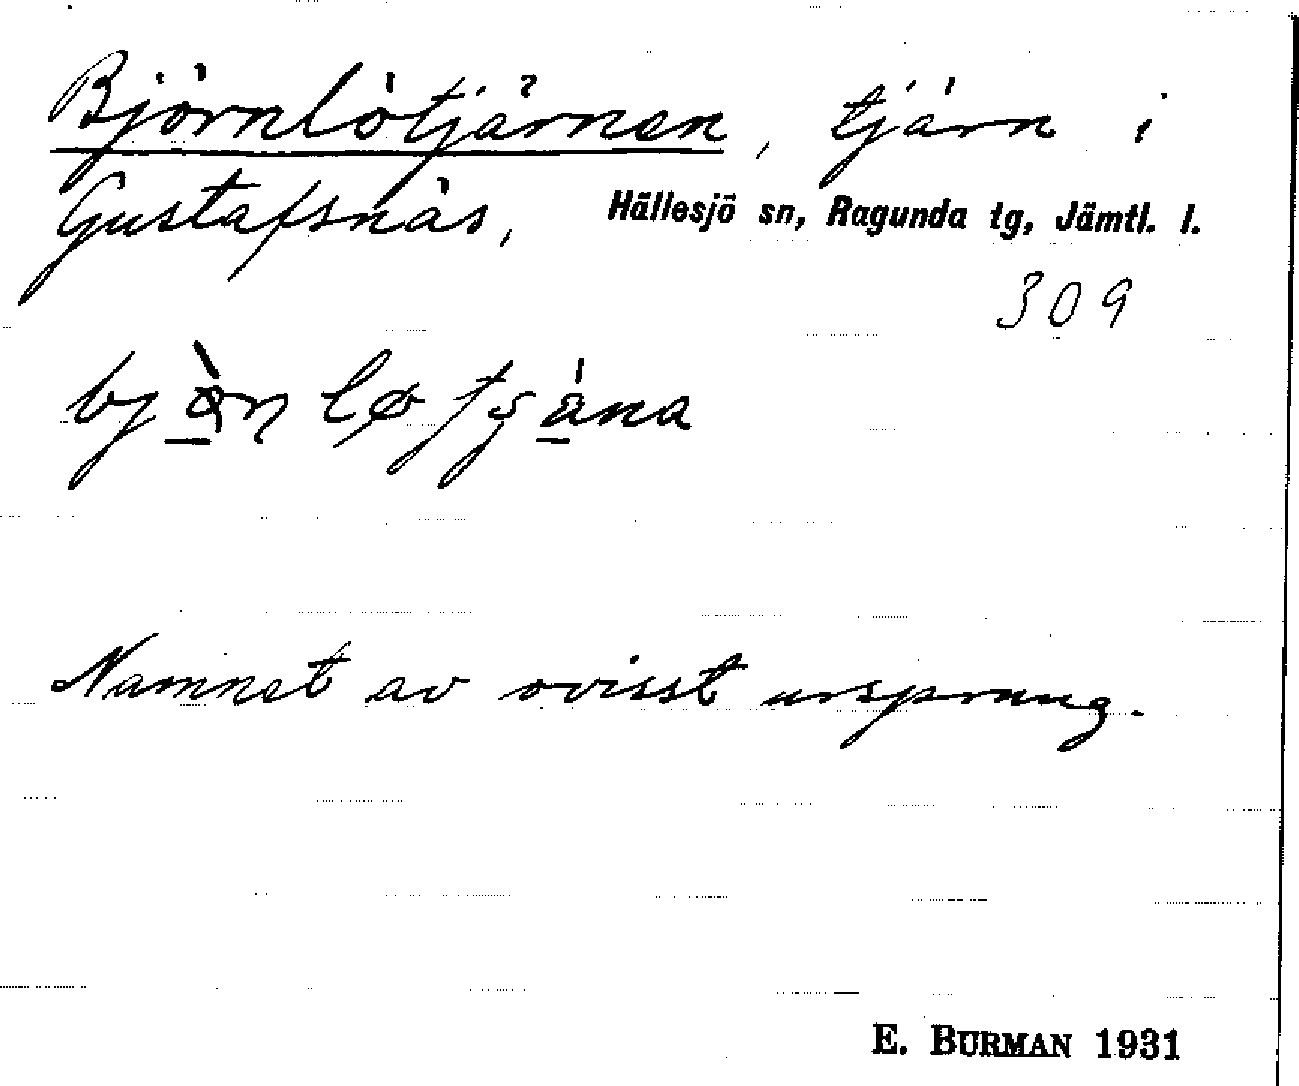 Björnlötjärnen, tjärn i
Gustafsnäs, Hällesjö sn, Ragunda tg, Jämtl. l.
309
Namnet av ovisst ursprung.
E. BURMAN 1931